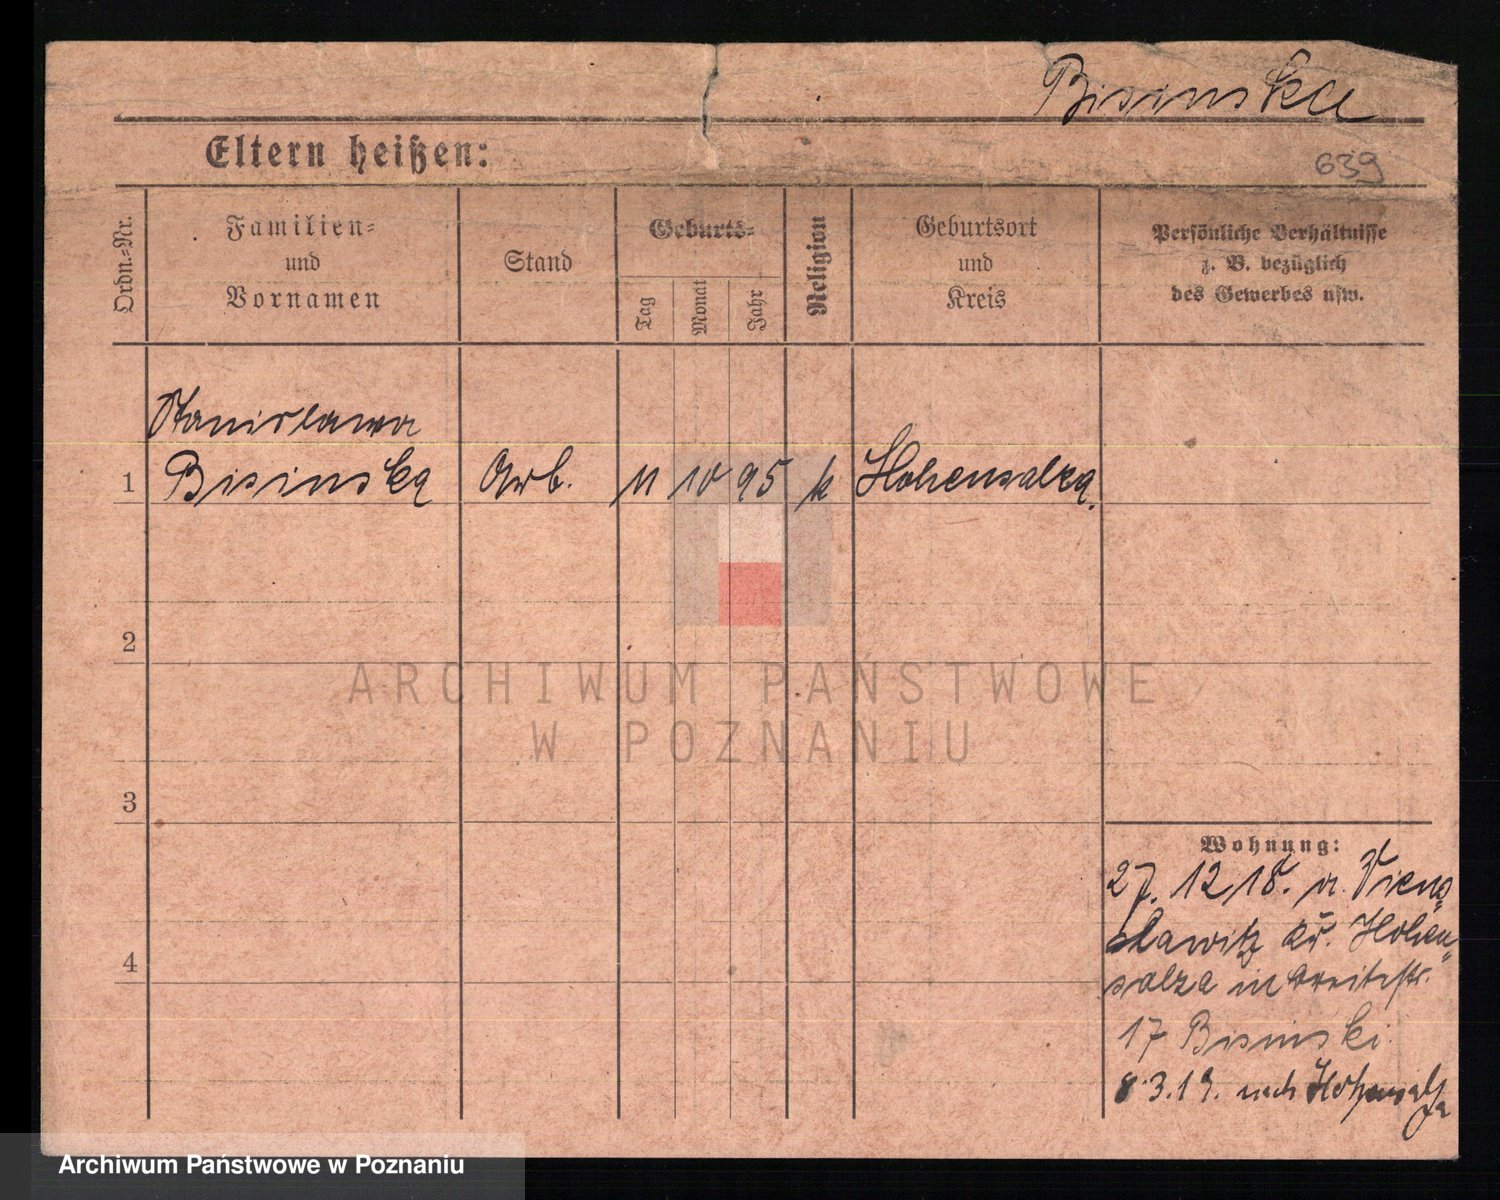 Bisinska
Eltern heißen:
639
Ordn.-Nr.
Familien-
und
Vornamen
Stand
Geburts-
Tag
Monat
Jahr
Religion
Geburtsort
und
Kreis
Persönliche Verhältnisse
z. B. bezüglich
des Gewerbes usw.
Stanislawa
1 Bisinska Arb. 11 10 95 k Hohensalza.
2
ARCHIWUM PAŃSTWOWE
W POZNANIU
3
Wohnung:
27. 12 18. a.
slawitz Kr. Hohen
4
salza in Breitestr.
17 Bisinski.
8.3.19. nach Hohensalza
Archiwum Państwowe w Poznaniu